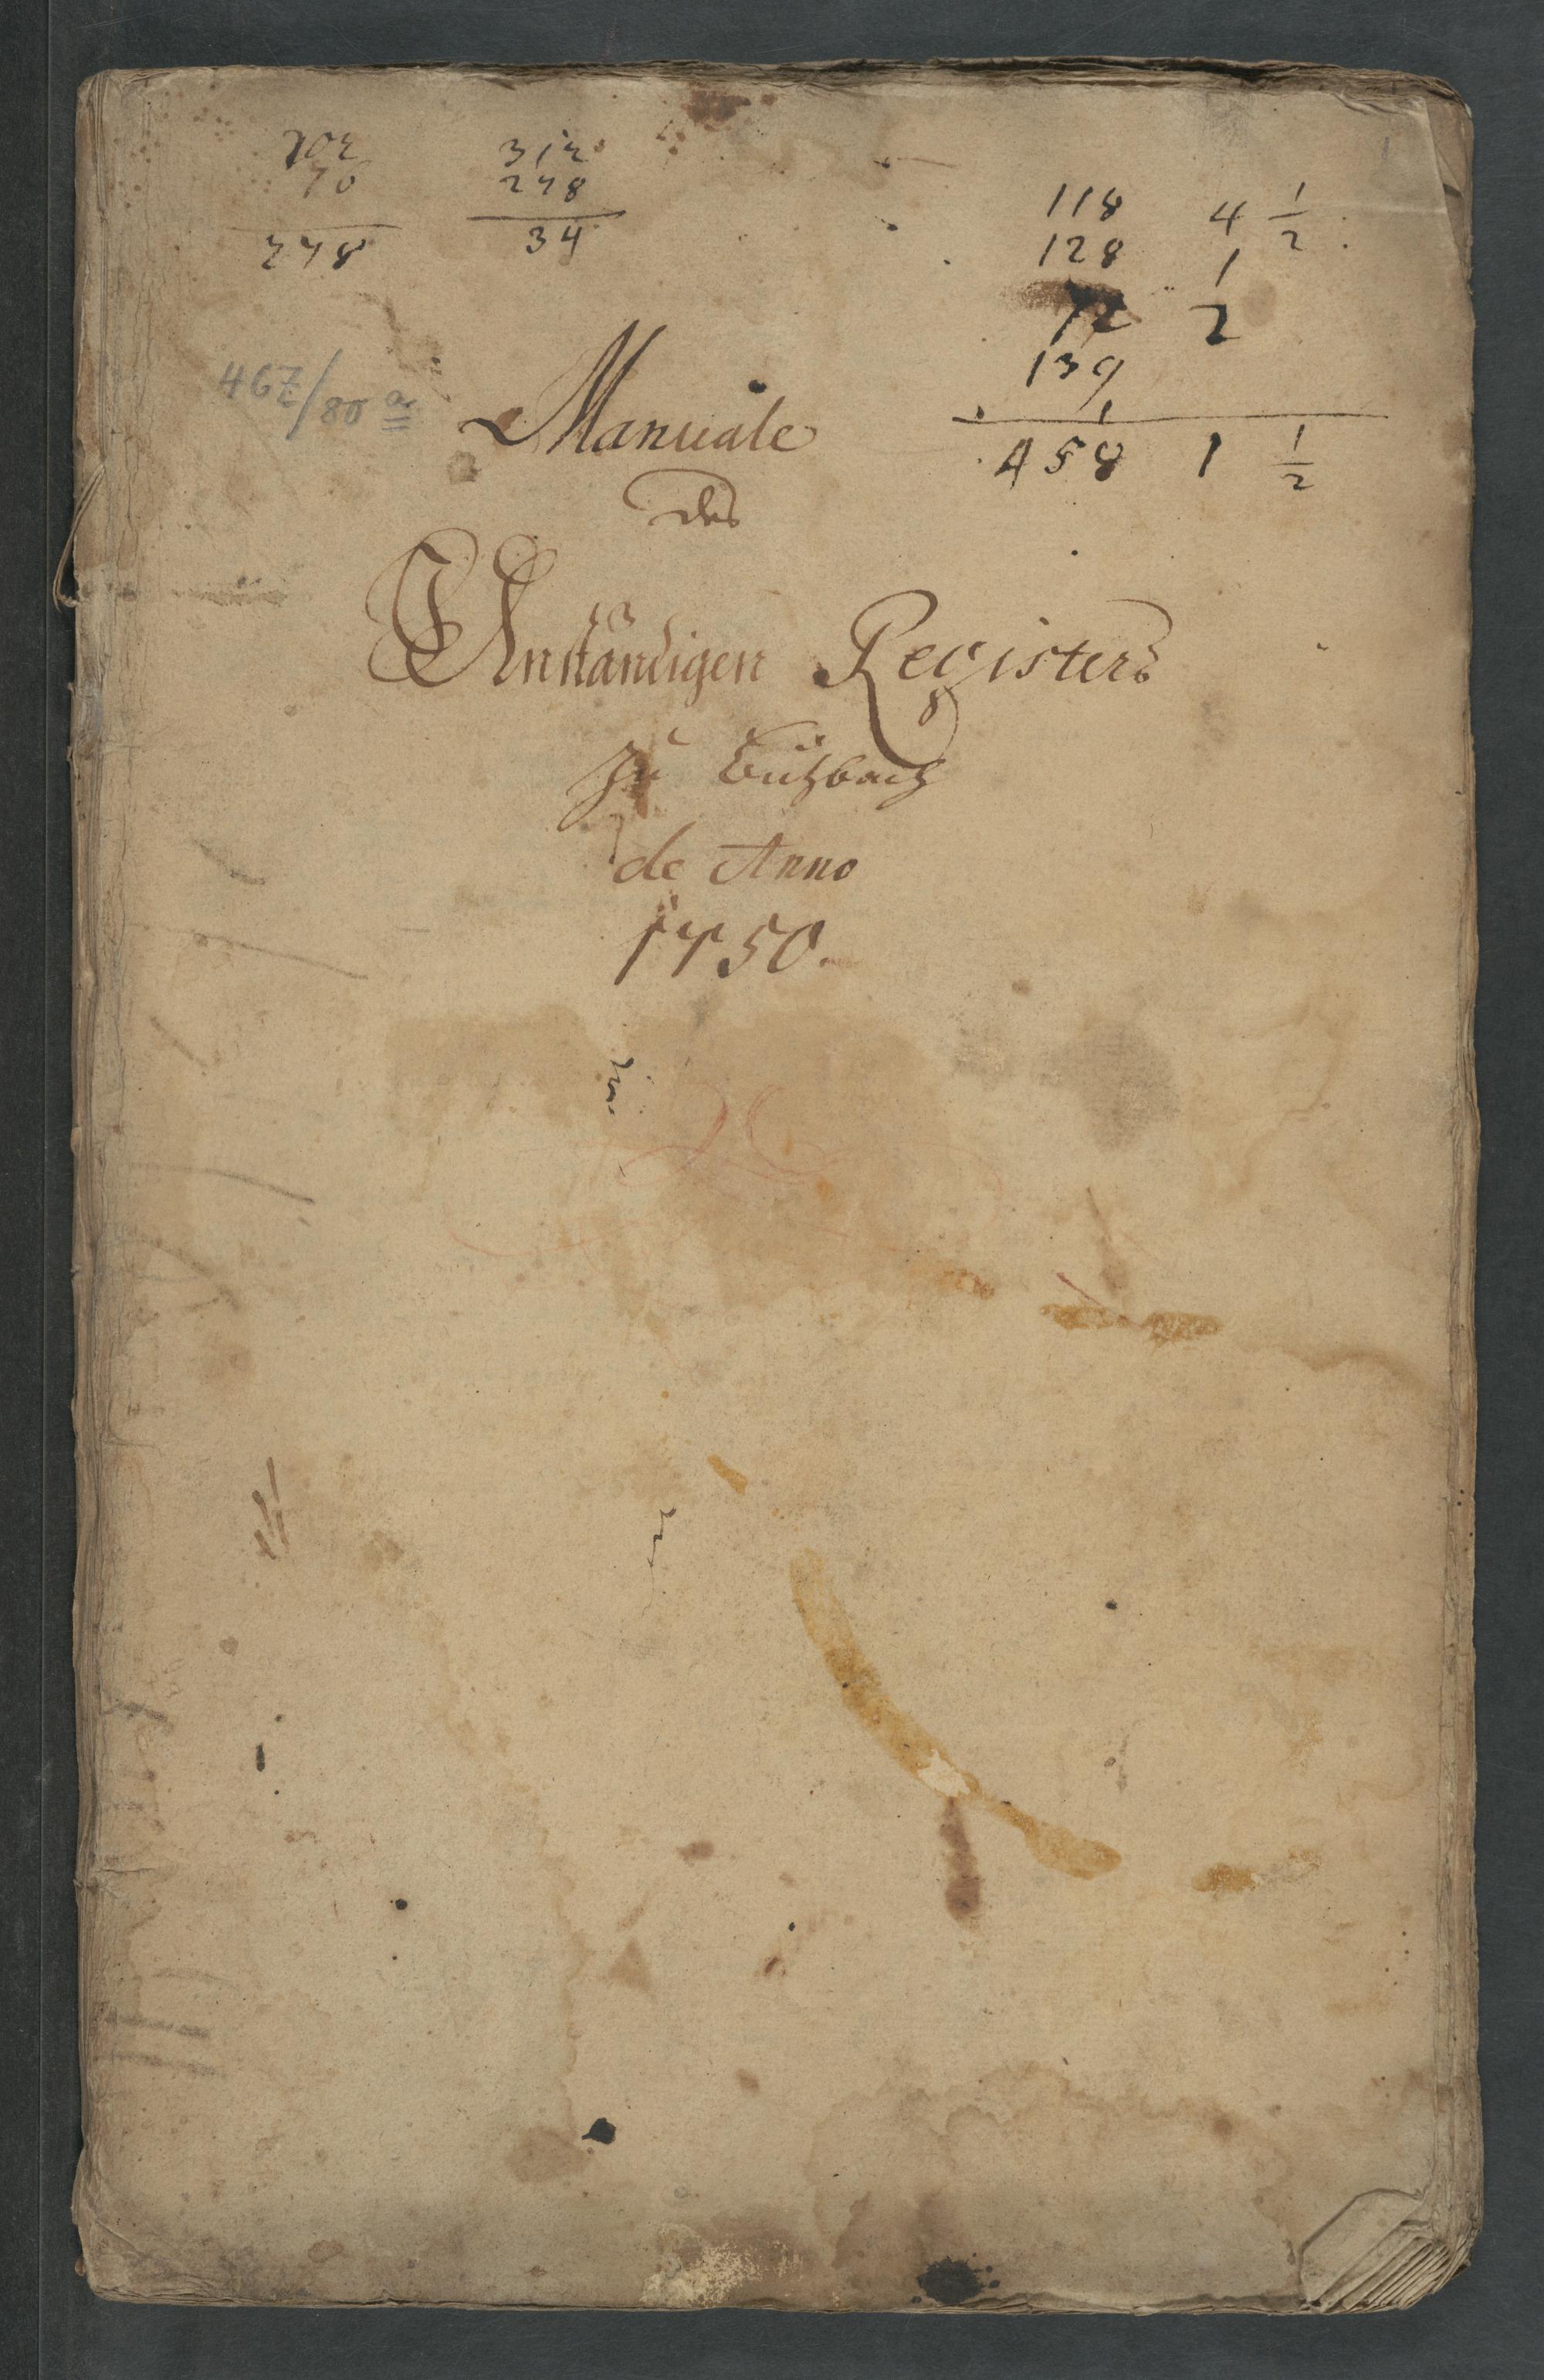 202
76
278
312
278
34
118 4 1/2
128 1
72 2
139
1
458 1 1/2
467/80 a
Manuale
des
Unständigen Registers
zu Butzbach
de Anno
1750.